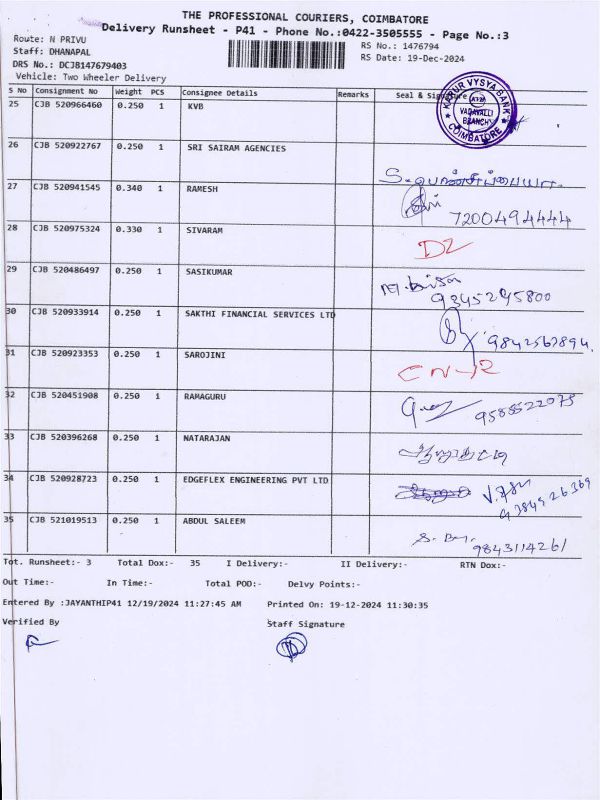 THE PROFESSIONAL COURIERS, COIMBATORE
Delivery Runsheet - P41 - Phone No.:0422-3505555 - Page No.:3
Route: N PRIVU
RS No.: 1476794
Staff: DHANAPAL
RS Date: 19-Dec-2024
DRS No.: DCJB147679403
Vehicle: Two Wheeler Delivery
S No Consignment No Weight PCS Consignee Details Remarks Seal & Signature
KARUR VYSYA BANK
KVB
VADAVALLI
BRANCH
COIMBATORE
25 CJB 520966460 0.250 1 KVB
26 CJB 520922767 0.250 1 SRI SAIRAM AGENCIES
27 CJB 520941545 0.340 1 RAMESH
7200494444
28 CJB 520975324 0.330 1 SIVARAM
DL
29 CJB 520486497 0.250 1 SASIKUMAR
9345295800
30 CJB 520933914 0.250 1 SAKTHI FINANCIAL SERVICES LTD
9842567894.
31 CJB 520923353 0.250 1 SAROJINI
CN-R
32 CJB 520451908 0.250 1 RAMAGURU
9585522075
33 CJB 520396268 0.250 1 NATARAJAN
34 CJB 520928723 0.250 1 EDGEFLEX ENGINEERING PVT LTD
9384926369
35 CJB 521019513 0.250 1 ABDUL SALEEM
9843114261
Tot. Runsheet:- 3 Total Dox:- 35 I Delivery:- II Delivery:- RTN Dox:-
Out Time:- In Time:- Total POD:- Delvy Points:-
Entered By :JAYANTHIP41 12/19/2024 11:27:45 AM Printed On: 19-12-2024 11:30:35
Verified By Staff Signature